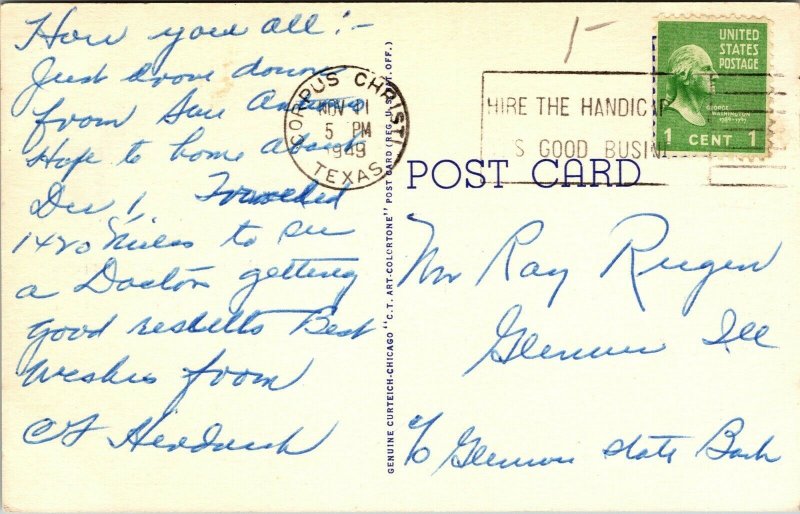 How you all :-
Just drove down
from San Antonio
Hope to home about
Dec 1, Traveled
1420 Miles to see
a Doctor getting
good results Best
Wishes from
CORPUS CHRISTI
NOV 11
5 PM
1949
TEXAS
HIRE THE HANDIC P
S GOOD BUSIN
UNITED
STATES
POSTAGE
GEORGE
WASHINGTON
1789-1797
1 CENT 1
POST CARD
GENUINE CURTEICH-CHICAGO "C.T. ART-COLORTONE" POST CARD (REG. U.S. PAT. OFF.)
Mr Ray
Ill
c/o State Bank